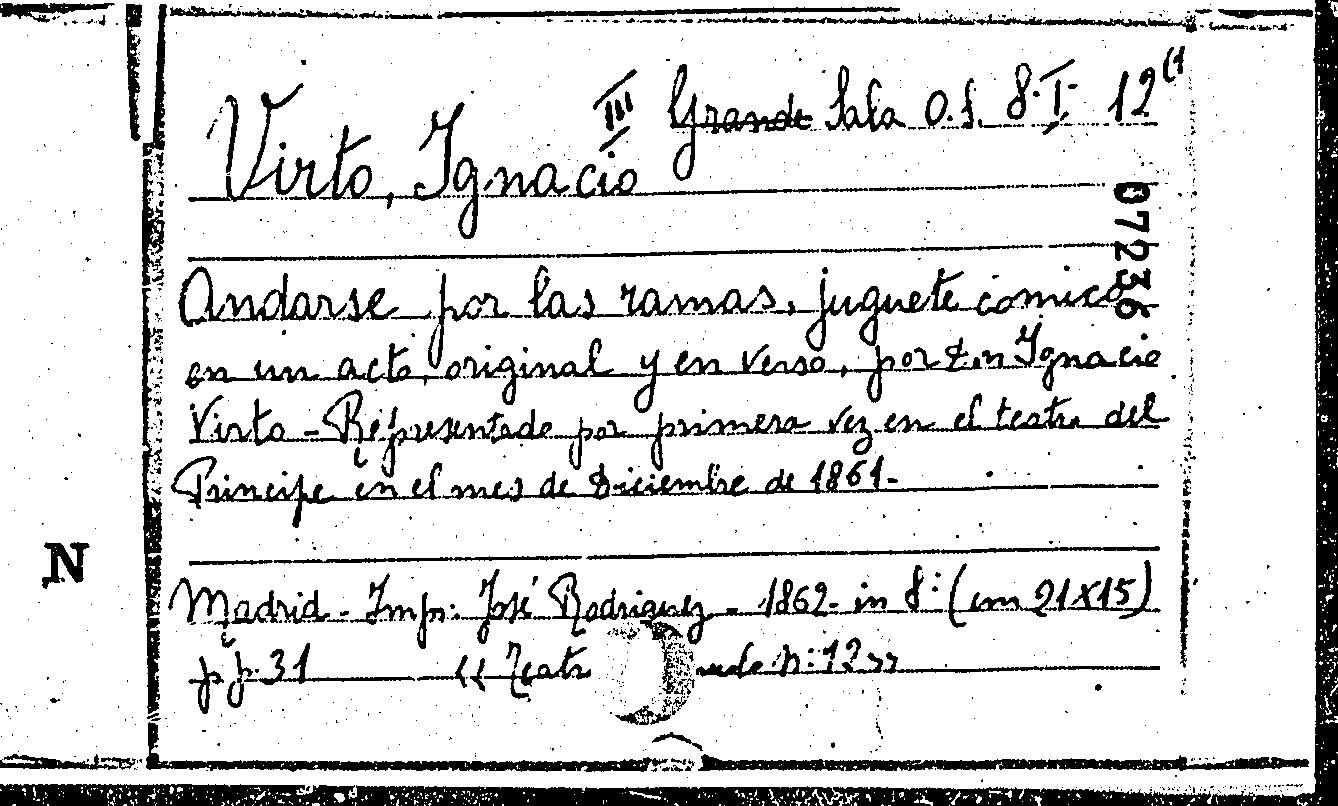 III Grande Sala O.S. 8.I. 12(1
Virto, Ignacio
07236
Andarse por las ramas, juguete cómico
en un acto, original y en verso, por Don Ignacio
Virto - Representado por primera vez en el teatro del
Principe en el mes de Diciembre de 1861.-
N
Madrid - Imp: José Rodriguez - 1862- in 8: (cm 21x15)
p.p. 31 << Teatr n: 12>>